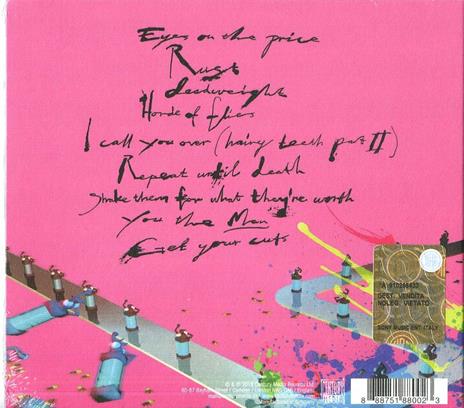 Eyes on the price
Rust
deadweight
Horde of flies
I call you over (hairy teeth part II)
Repeat until death
Shake them for what they're worth
You the Man
Get your cuts
DEST. VENDITA
NOLEG. VIETATO
SONY MUSIC ENT. ITALY
Century Media Records Ltd
8 88751 88002 3